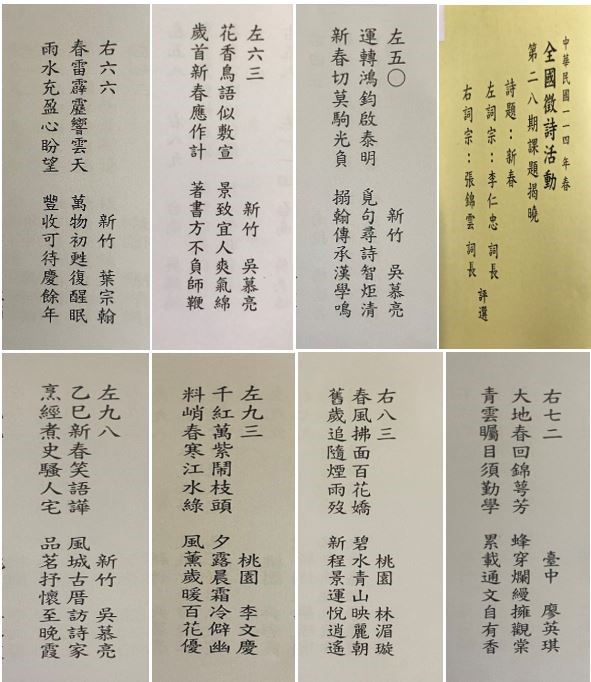 中華民國一一四年春
全國徵詩活動
第二八期課題揭曉
詩題：新春
左詞宗：李仁忠 詞長
右詞宗：張錦雲 詞長
評選
左五〇 新竹 吳慕亮
運轉鴻鈞啟泰明 覓句尋詩智炬清
新春切莫駒光負 搦翰傳承漢學鳴
左六三 新竹 吳慕亮
花香鳥語似敷宣 景致宜人爽氣綿
歲首新春應作計 著書方不負師鞭
右六六 新竹 葉宗翰
春雷霹靂響雲天 萬物初甦復醒眠
雨水充盈心盼望 豐收可待慶餘年
右七二 臺中 廖英琪
大地春回錦萼芳 蜂穿爛縵擁觀棠
青雲矚目須勤學 累載通文自有香
右八三 桃園 林湄璇
春風拂面百花嬌 碧水青山映麗朝
舊歲追隨煙雨歿 新程景運悅逍遙
左九三 桃園 李文慶
千紅萬紫鬧枝頭 夕露晨霜冷僻幽
料峭春寒江水綠 風薰歲暖百花優
左九八 新竹 吳慕亮
乙巳新春笑語譁 風城古厝訪詩家
烹經煮史騷人宅 品茗抒懷至晚霞